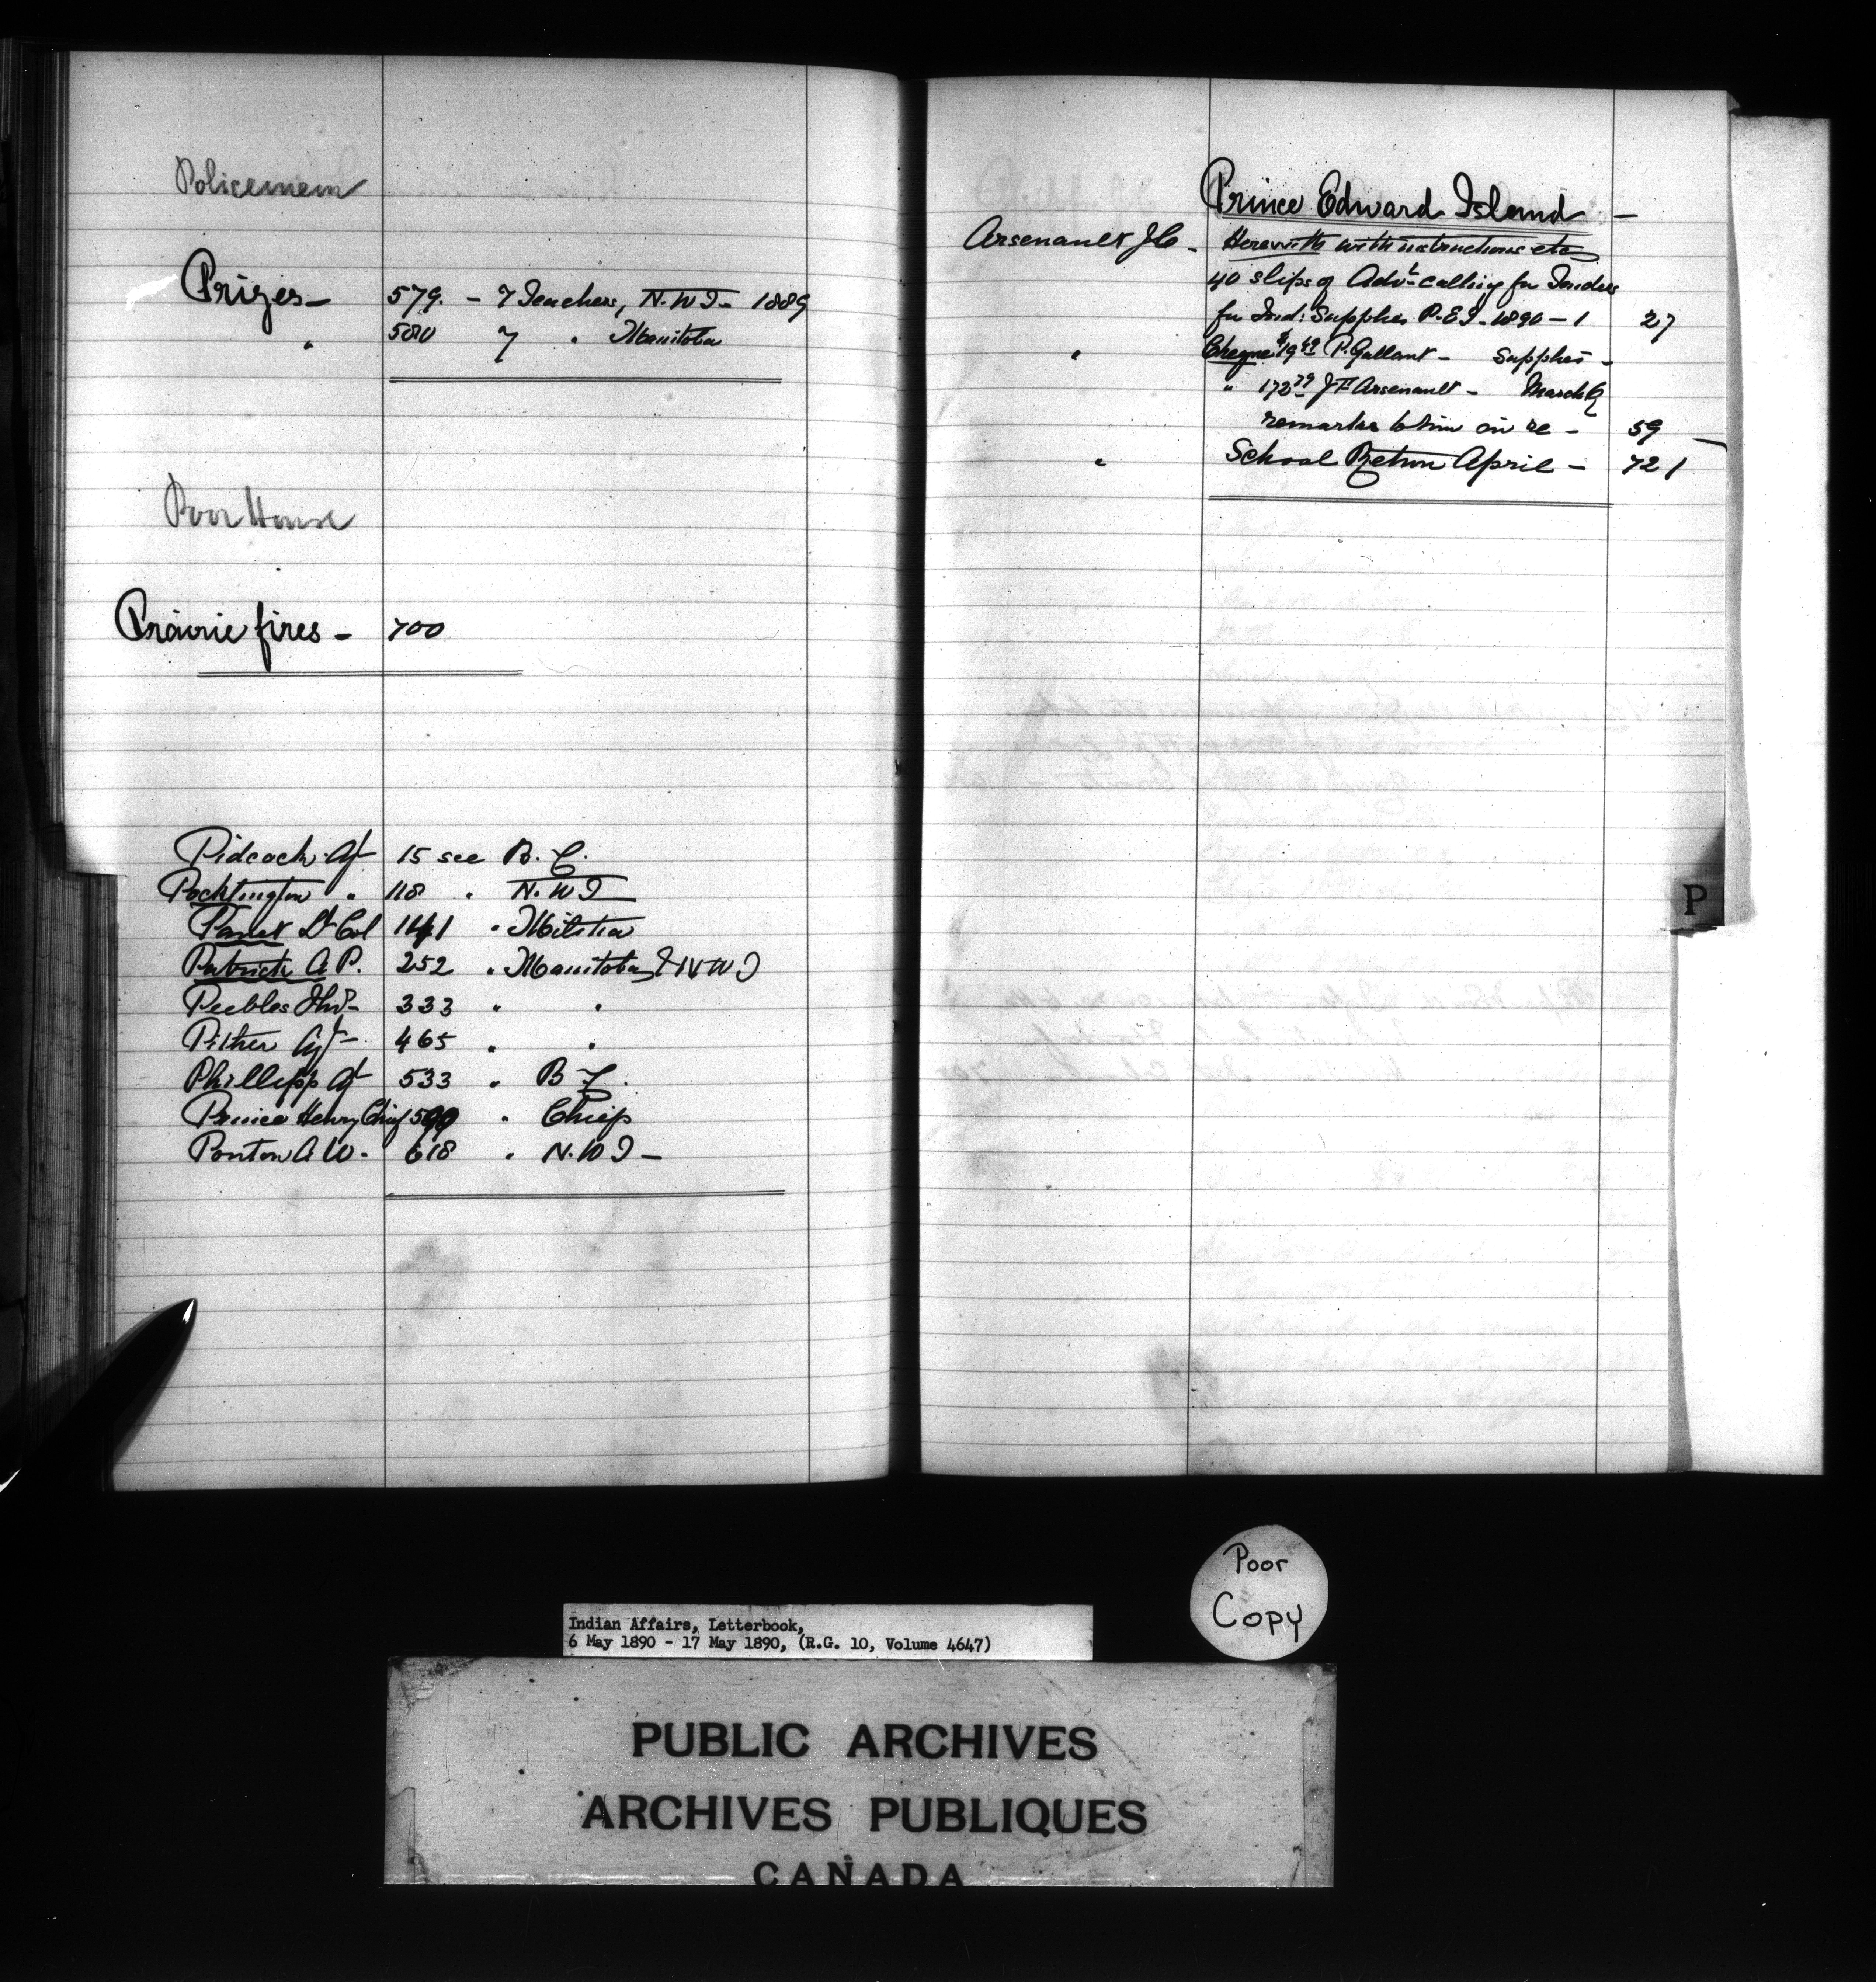 Policemen
Prizes — 579. — 7 Teachers, N.W.T. — 1889
" 580 7 " Manitoba
Poor House
Prairie fires — 700
Pidcock Agt 15 see B.C.
Pocklington " 118 " N.W.T
Panet Lt Col 141 " Militia
Patrick A.P. 252 " Manitoba & N W T
Peebles 333 " "
Pither Agt — 465 " "
Phillipps Agt 533 " B C.
Prince Henry Chief 599 " Chiefs
Ponton A.W. 618 " N.W.T —
Prince Edward Island —
Arsenault J.O. — Herewith with instructions etc
40 slips of Advt calling for Tenders
for Ind: Supplies P.E.I. 1890 — 1 27
" Cheque $19 P. Gallant — Supplies —
" 172 J F Arsenault — March Q
remarks to him on re — 59
" School Return April — 721
P
Poor
Copy
Indian Affairs, Letterbook,
6 May 1890 - 17 May 1890, (R.G. 10, Volume 4647)
PUBLIC ARCHIVES
ARCHIVES PUBLIQUES
CANADA